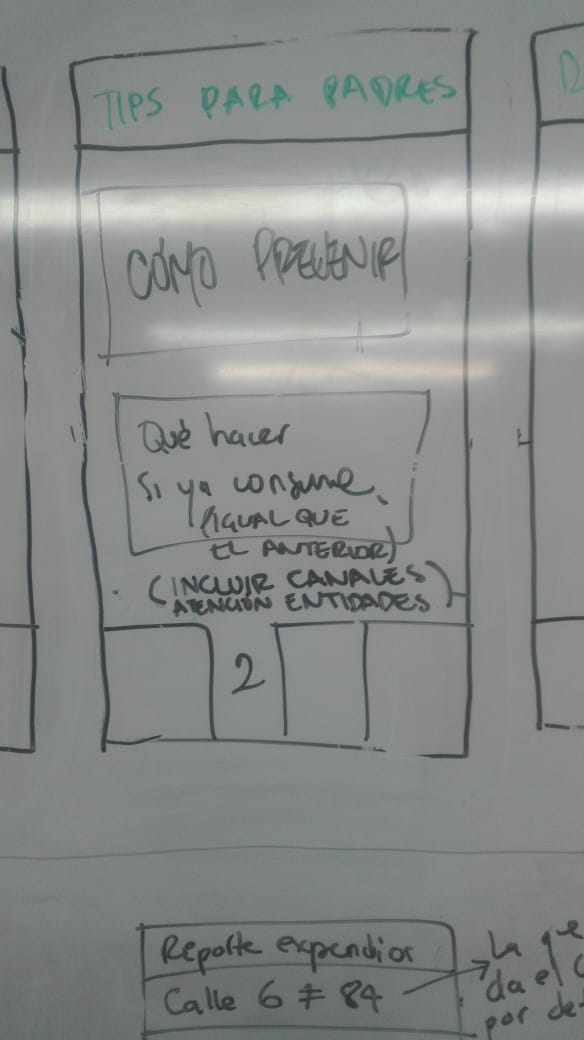 TIPS PARA PADRES
CÓMO PREVENIR
Qué hacer
Si ya consume
(IGUAL QUE
EL ANTERIOR)
(INCLUIR CANALES
ATENCIÓN ENTIDADES)
2
Reporte expendios
Calle 6 # 84
La
da el
por